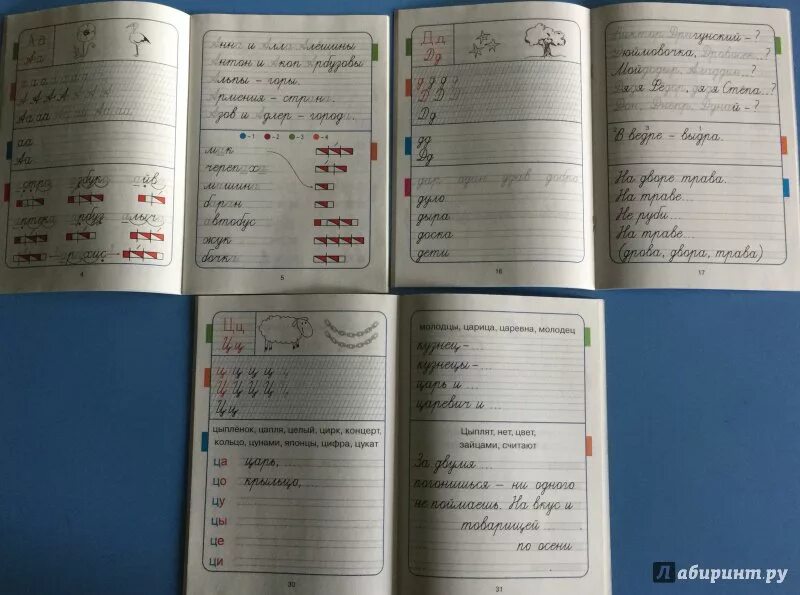 Аа
Аа
Аа аа Аа аа
аа
Аа
4
Анна и Алла Алёшины
Антон и Акоп Арбузовы
Альпы – горы.
Армения – страна.
Азов и Адлер – города.
– 1 – 2 – 3 – 4
мак
черепаха
машина
баран
автобус
жук
бочка
5
Дд
Дд
Дд
дд
Дд
дар один удав добро
дуло
дыра
доска
дети
16
Виктор Драгунский – ?
Дюймовочка, Дровосек...?
Мойдодыр, Аладдин...?
Дядя Фёдор, дядя Стёпа...?
Дон, Днепр, Дунай – ?
В ведре – выдра.
На дворе трава.
На траве...
Не руби...
На траве...
(дрова, двора, трава)
17
Цц
Цц
Цц
цыплёнок, цапля, целый, цирк, концерт,
кольцо, цунами, японцы, цифра, цукат
ца царь, ...
цо крыльцо, ...
цу
цы
це
ци
30
молодцы, царица, царевна, молодец
кузнец – ...
кузнецы – ...
царь и ...
царевич и ...
Цыплят, нет, цвет,
зайцами, считают
За двумя ...
погонишься – ни одного
не поймаешь. На вкус и
товарищей
по осени
31
Лабиринт.ру